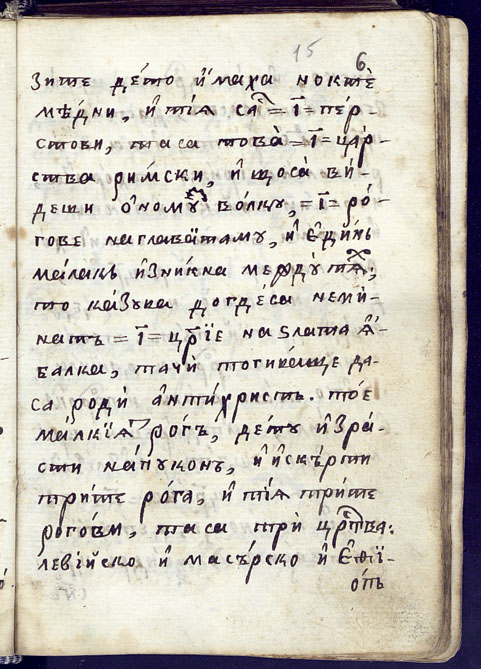 15 6
зите де́то и҆маха ноктѐ
мѣ́дни, и҆ тїѧ са̀ = і҃ = пе́р-
стови, та са това̀ = і҃ = ца́р-
ства ри́мски, и҆ що са̀ ви́-
деши о҆ному̀ во́лку, = і҃ = ро́-
гове на главаⷮтаму, и҆ є҆ди́нь
ма́лакъ и҆зникна междꙋ тѧ̀ⷯ,
то ка́зува догде́са неми́-
натъ = і҃ = цр҃їе на злата ꙗ҆́-
балка, тачѝ тогива́ще да-
са родѝ а҆нтихристъ. то́е
ма́лкїѧ рогъ, де́ту и҆зра́-
сти на́пуконъ, и҆ и҆скъ́рти
три́те ро́га, и҆ тїѧ три́те
рого́ви, та са трѝ црⷭ҇тва:
леві́йско и҆ масъ́рско и҆ є҆ѳї-
о́пъ